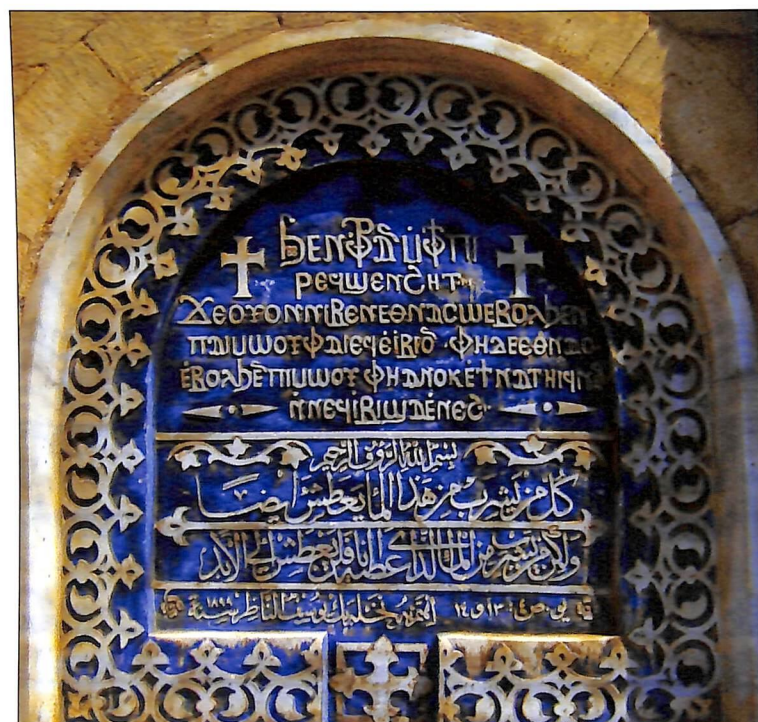 ϧⲉⲛ ⲫⲣⲁⲛ ⲙ̀ⲫϯ ⲡⲓ
ⲣⲉϥϣⲉⲛϩⲏⲧ
ϫⲉ ⲟⲩⲟⲛ ⲛⲓⲃⲉⲛ ⲉⲑⲛⲁⲥⲱ ⲉⲃⲟⲗϧⲉⲛ
ⲡⲁⲓⲙⲱⲟⲩ ⲫⲁⲓ ⲉϥⲉ̀ⲓⲃⲓ · ⲫⲏ ⲇⲉ
ⲉ̀ⲃⲟⲗϧⲉⲛ ⲡⲓⲙⲱⲟⲩ ⲫⲏ ⲁⲛⲟⲕ ⲉ̀ϯⲛⲁⲧⲏⲓϥ
ⲛ̀ⲛⲉϥⲓⲃⲓ ϣⲁ ⲉ̀ⲛⲉϩ
بسم الله الرؤف الرحيم
كل من يشرب من هذا الماء يعطش ايضا
ولكن من يشرب من الماء الذي اعطيه انا فلن يعطش الى الابد
يو ص ٤: ١٣ و ١٤ خليل بك يوسف الناظر سنة